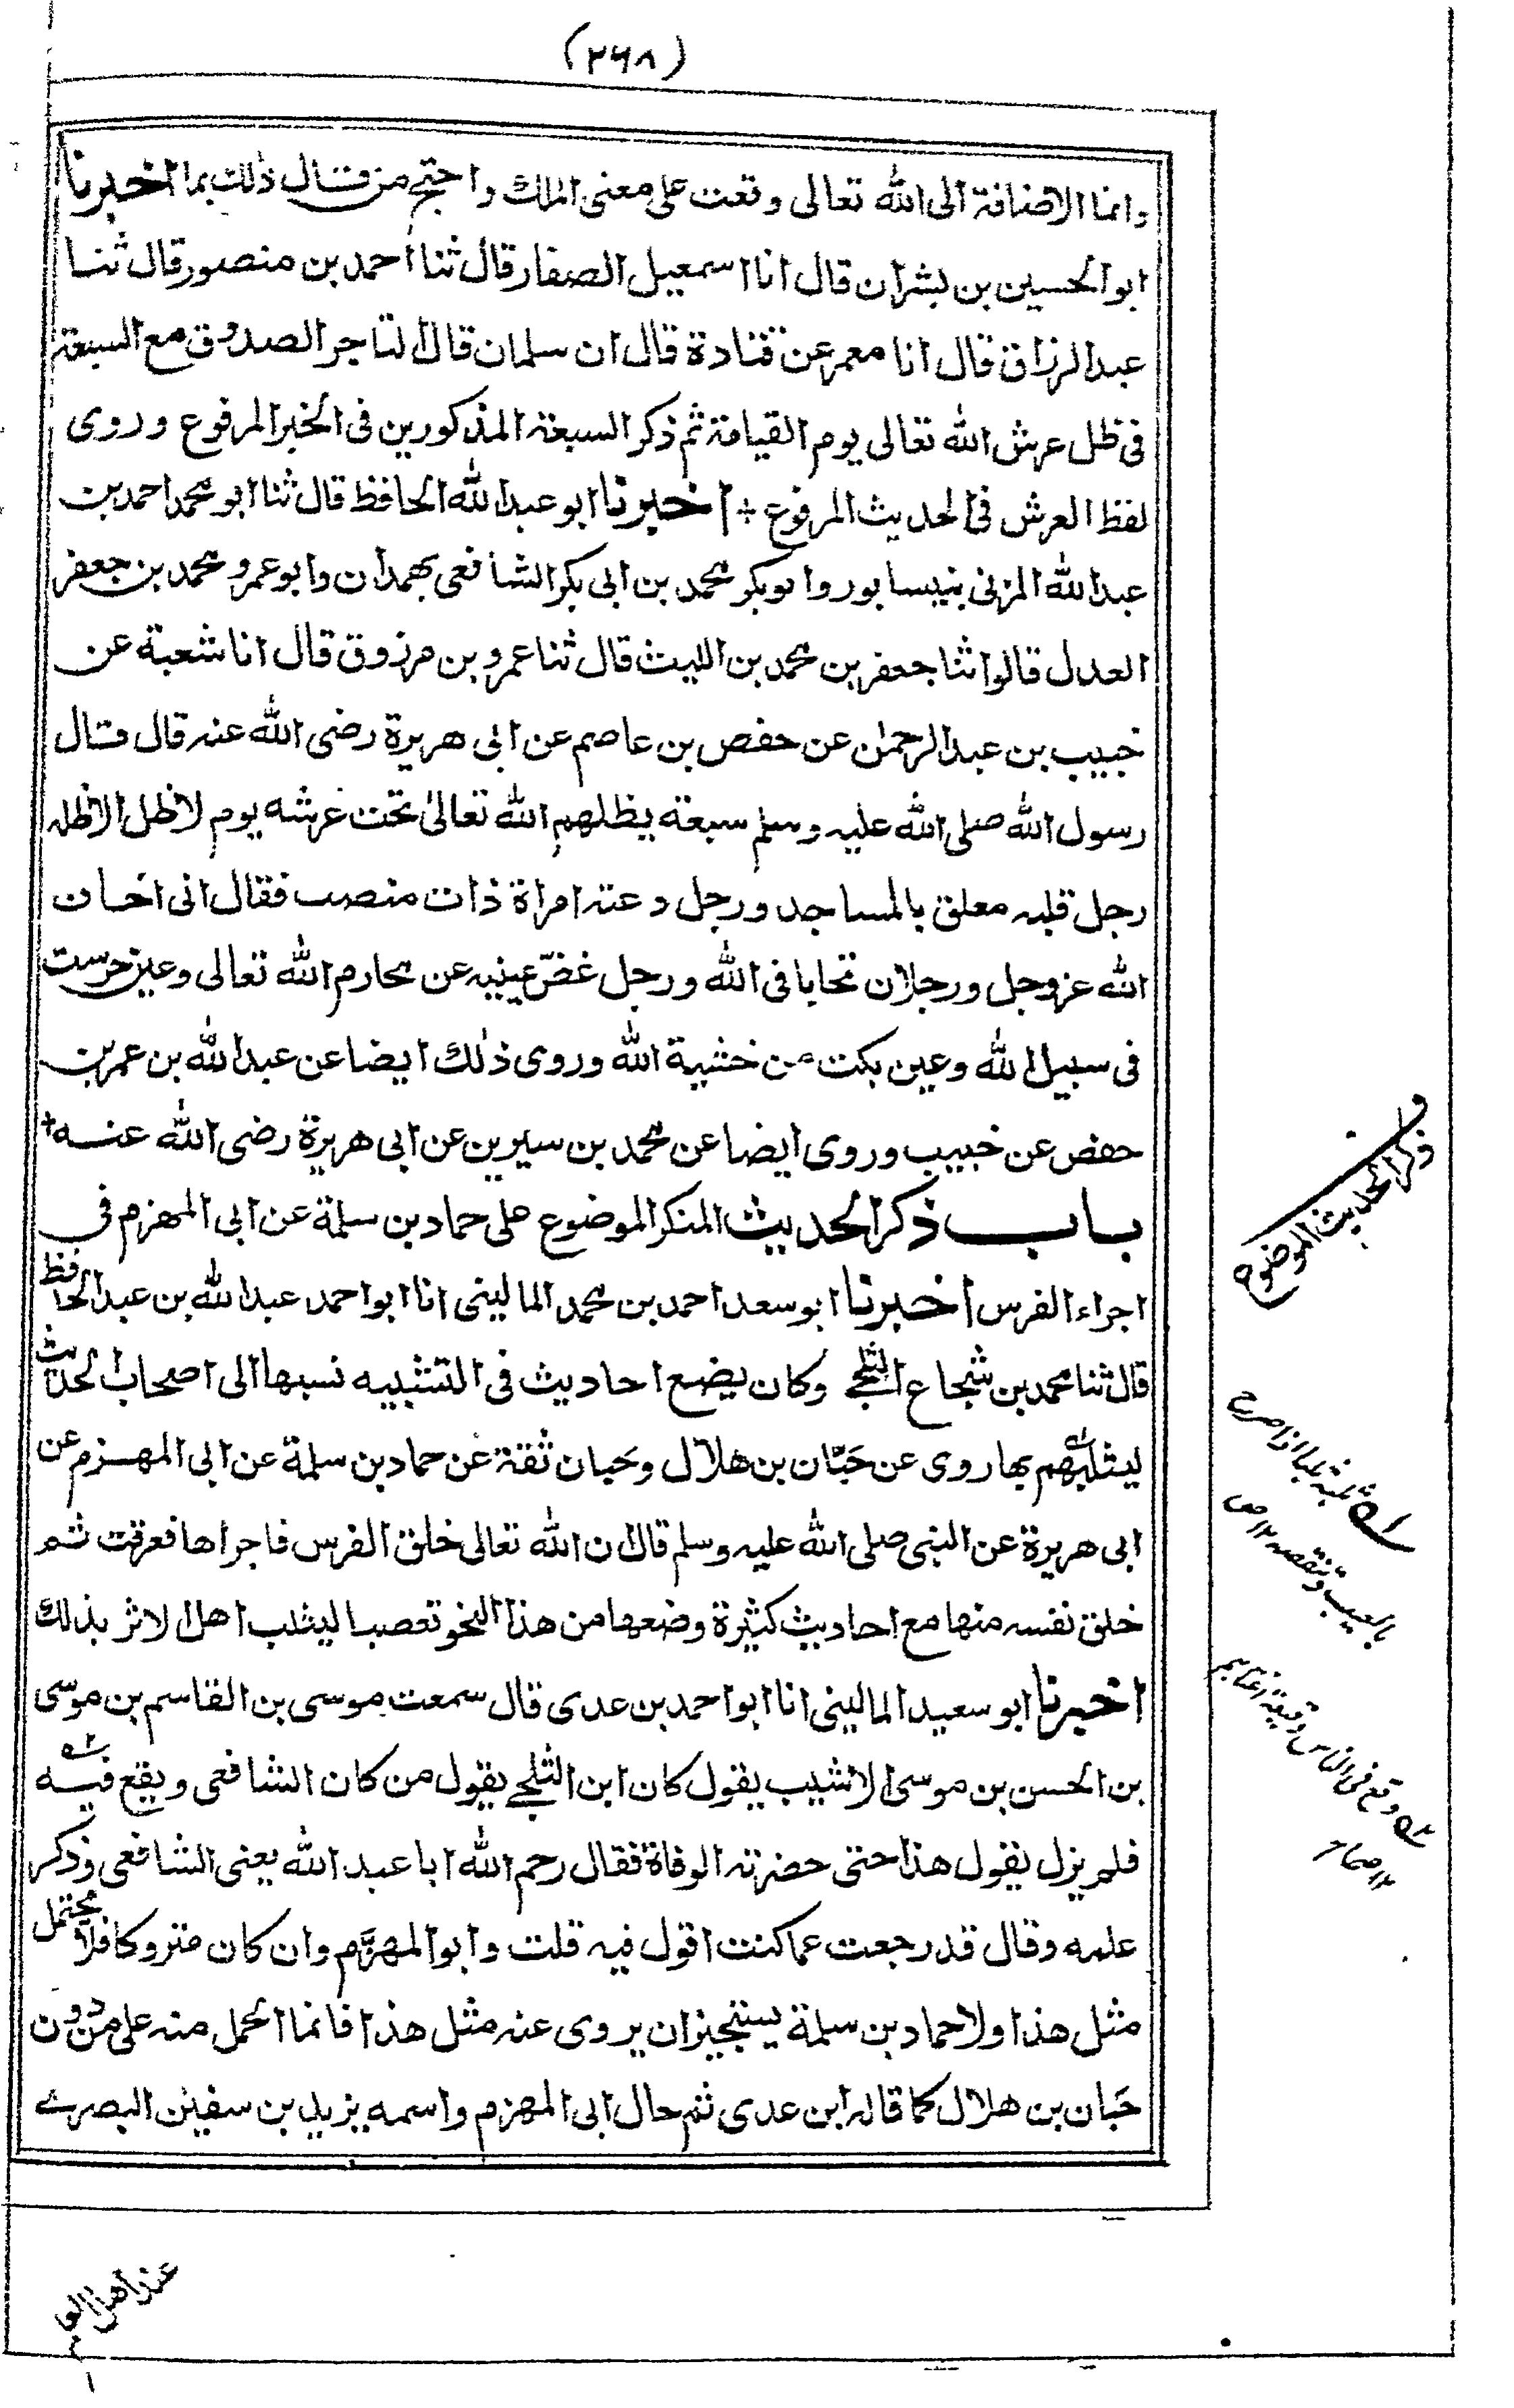 (٢٦٨)
وانما الاضافة الى الله تعالى وقعت على معنى الملك واحتج من قال ذلك بما اخبرنا
ابوالحسين بن بشران قال انا اسمعيل الصفار قال ثنا احمد بن منصور قال ثنا
عبد الرزاق قال انا معمر عن قتادة قال ان سلمان قال التاجر الصدوق مع السبعة
فى ظل عرش الله تعالى يوم القيامة ثم ذكر السبعة المذكورين فى الخبر المرفوع وروى
لفظ العرش فى الحديث المرفوع + اخبرنا ابو عبد الله الحافظ قال ثنا ابو محمد احمد بن
عبد الله المزنى بنيسابور وابوبكر محمد بن ابى بكر الشافعى بهمدان وابوعمرو محمد بن جعفر
العدل قالوا ثنا جعفر بن محمد بن الليث قال ثنا عمرو بن مرزوق قال انا شعبة عن
خبيب بن عبد الرحمٰن عن حفص بن عاصم عن ابى هريرة رضى الله عنه قال قال
رسول الله صلى الله عليه وسلم سبعة يظلهم الله تعالىٰ تحت عرشه يوم لا ظل الا ظله
رجل قلبه معلق بالمساجد ورجل دعته امراة ذات منصب فقال انى اخاف
الله عزوجل ورجلان تحابا فى الله ورجل غضّ عينيه عن محارم الله تعالى وعين حرست
فى سبيل الله وعين بكت من خشية الله وروى ذٰلك ايضا عن عبد الله بن عمر بن
حفص عن خبيب وروى ايضا عن محمد بن سيرين عن ابى هريرة رضى الله عنه +
باب ذكر الحديث المنكر الموضوع على حماد بن سلمة عن ابى المهزم فى
اجراء الفرس اخبرنا ابو سعد احمد بن محمد المالينى انا ابو احمد عبد الله بن عبد الحافظ
قال ثنا محمد بن شجاع الثلجے وكان يضع احاديث فى التشبيه نسبها الى اصحاب الحديث
ليثلبهم بها روى عن حَبّان بن هلال وحَبان ثقة عن حماد بن سلمة عن ابى المهزم عن
ابى هريرة عن النبى صلى الله عليه وسلم قال ان الله تعالى خلق الفرس فاجراها فعرقت ثم
خلق نفسه منها مع احاديث كثيرة وضعها من هذا النحو تعصبا ليثلب اهل الاثر بذلك
اخبرنا ابو سعيد المالينى انا ابو احمد بن عدى قال سمعت موسى بن القاسم بن موسى
بن الحسن بن موسى الاشيب يقول كان ابن الثلجے يقول من كان الشافعى ويقع فيه
فلم يزل يقول هذا حتى حضرته الوفاة فقال رحم الله ابا عبد الله يعنى الشافعى وذكر
علمه وقال قد رجعت عما كنت اقول فيه قلت وابو المهزَّم وان كان متروكا فلا يحتمل
مثل هذا ولا حماد بن سلمة يستجيز ان يروى عنه مثل هذا فانما الحمل منه على من دون
حَبان بن هلال كما قاله ابن عدى ثم حال ابى المهزم واسمه يزيد بن سفيٰن البصرے
ذكر الحديث الموضوع
ثلبه ثلبا اذا صرح
بالعيب وتنقصه ١٢ ص
وقع فى الناس وقيعة اغتابهم
١٢ صحاح
عند اهل